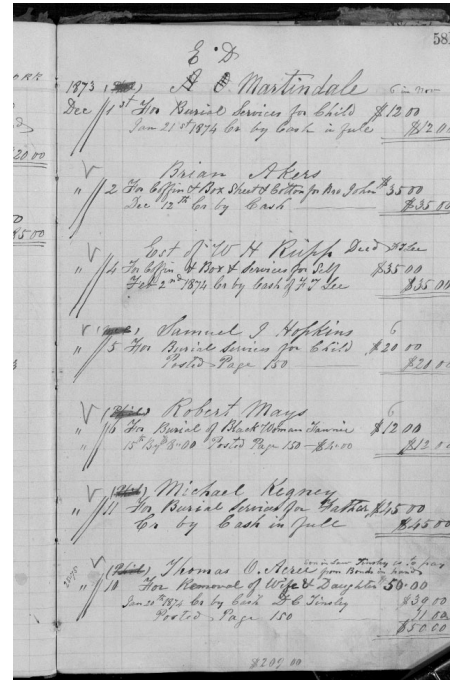 58
E. D
1873 Martindale 6 in Nov
Dec 1st For Burial Services for Child $12 00
Jan 21st 1874 Cr by Cash in full $12 00
Brian Akers
" 2 For Coffin & Box Sheet & Cotton for Bro John $35 00
Dec 12th Cr by Cash $35 00
Est of W H Rupp Decd
" 4 For Coffin & Box & Services for Self $35 00
Feb 2nd 1874 Cr by Cash of F T Lee $35 00
Samuel J Hopkins 6
" 5 For Burial Services for Child $20 00
Posted Page 150 $20 00
Robert Mays 6
" 6 For Burial of Black Woman $12 00
15th By $8.00 Posted Page 150 — $4.00 $12 00
Michael Kegney
" 11 For Burial Services for Father $45 00
Cr by Cash in full $45 00
Son in law Tinsley is to pay
Thomas O. from Bonds in hand
" 10 For Removal of Wife & Daughter 50.00
Jan 20th 1874 Cr by Cash D. C. Tinsley $39 00
Posted Page 150 11 00
$50 00
$209.00